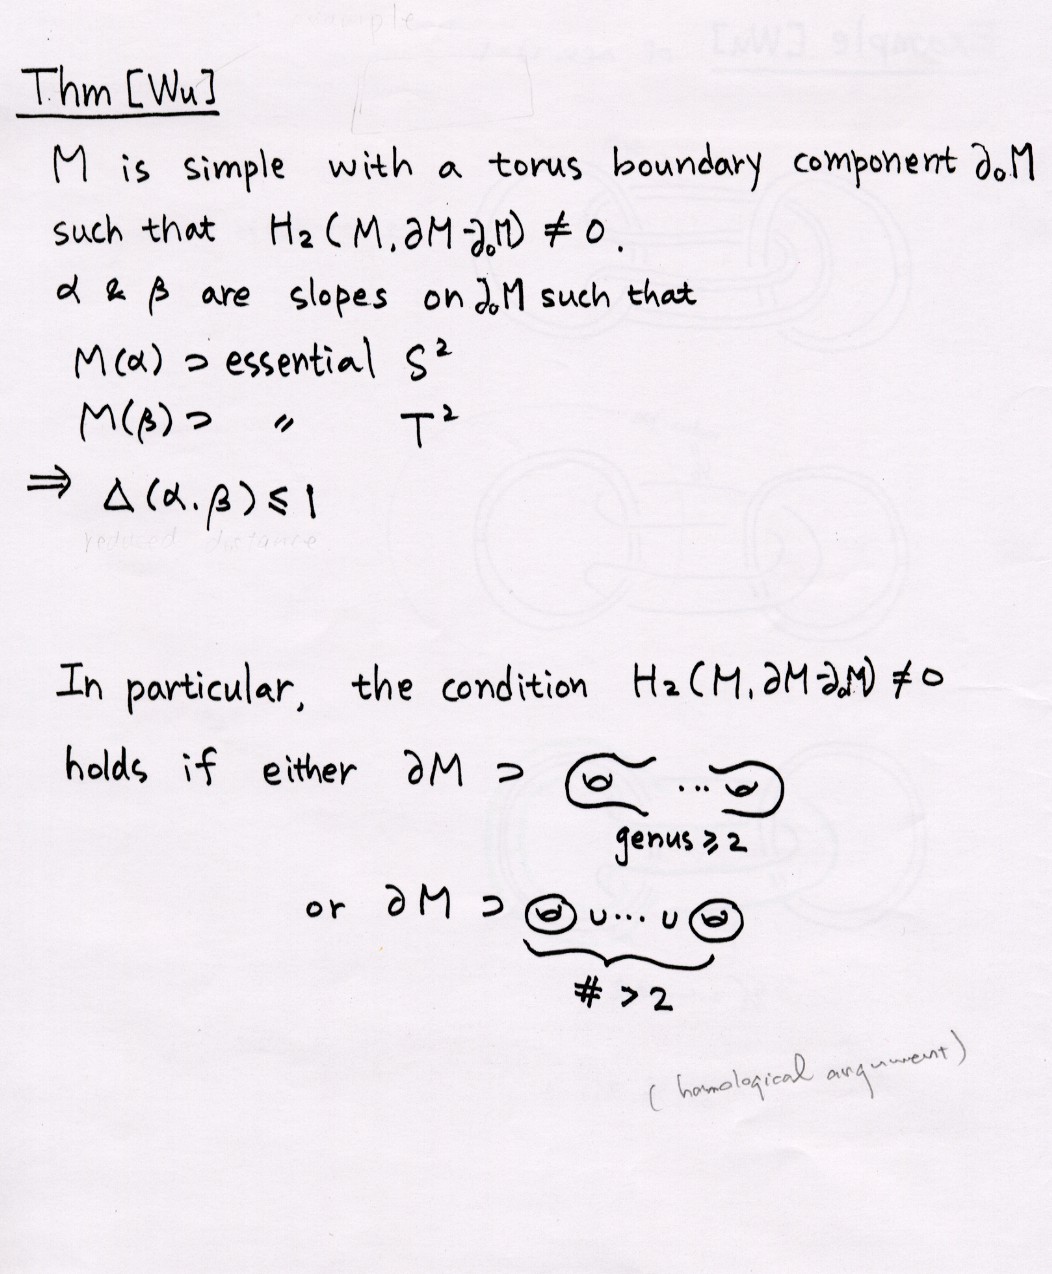 Thm [Wu]
M is simple with a torus boundary component ∂₀M
such that H₂(M, ∂M-∂₀M) ≠ 0.
α & β are slopes on ∂₀M such that
M(α) ⊃ essential S²
M(β) ⊃ 〃 T²
⇒ Δ(α.β) ≤ 1
reduced distance
In particular, the condition H₂(M, ∂M-∂₀M) ≠ 0
holds if either ∂M ⊃ ...
genus ≥ 2
or ∂M ⊃ ∪...∪
# > 2
(homological argument)